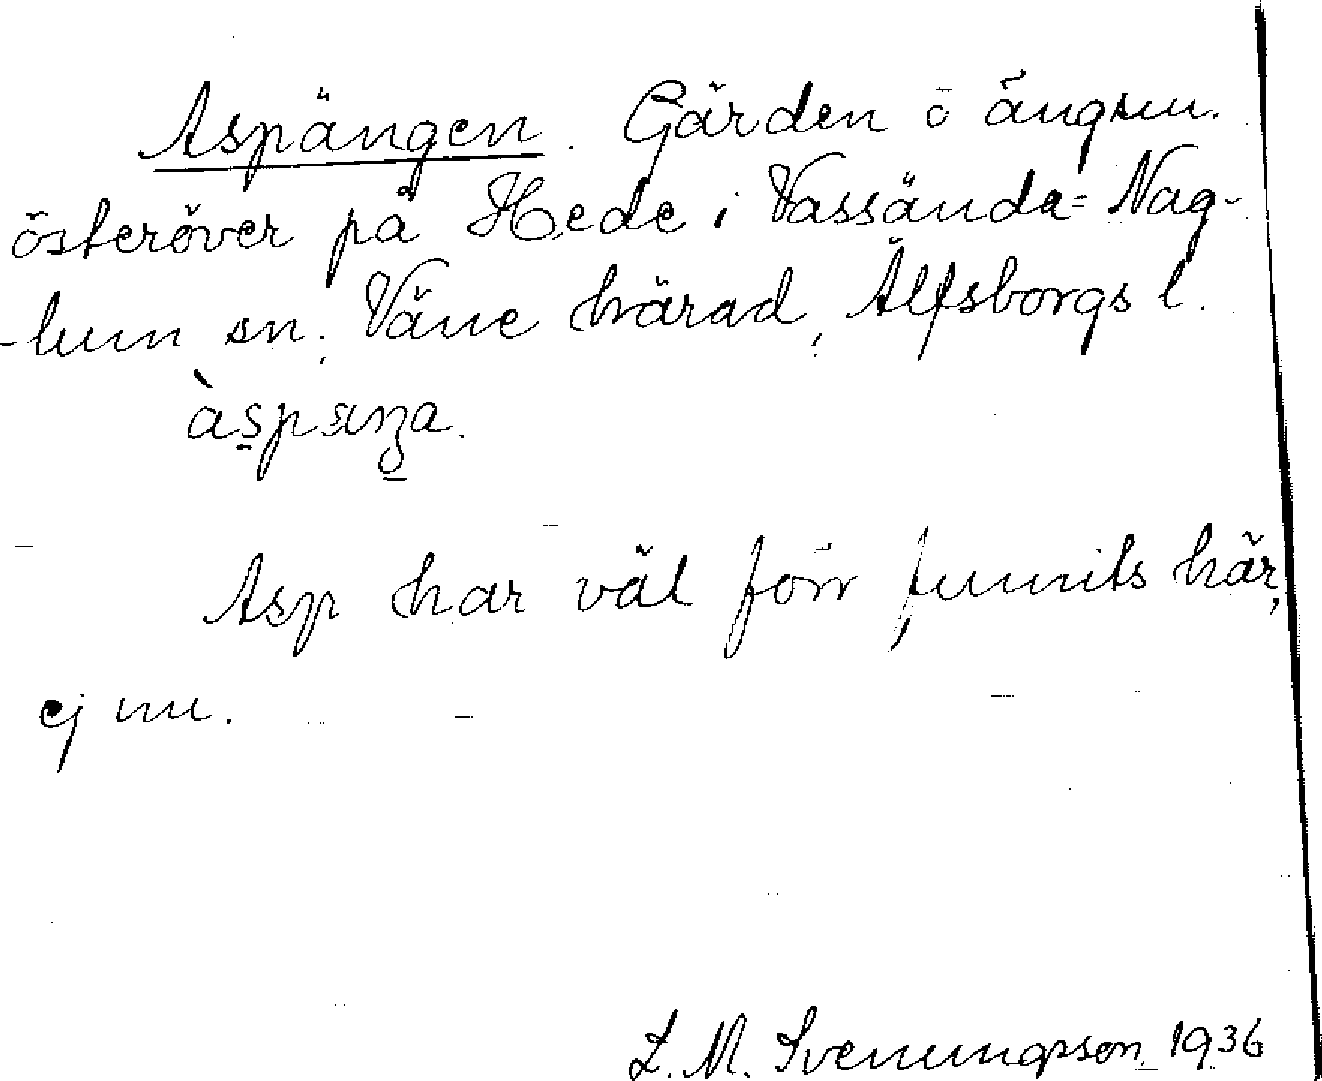 Aspängen. Gärden o ängen.
österöver på Hede i Vassända=Nag-
-lum sn. Väne härad, Älfsborgs l.
àspäŋa.
Asp har väl förr funnits här,
ej nu.
L. M. Svenungsson 1936